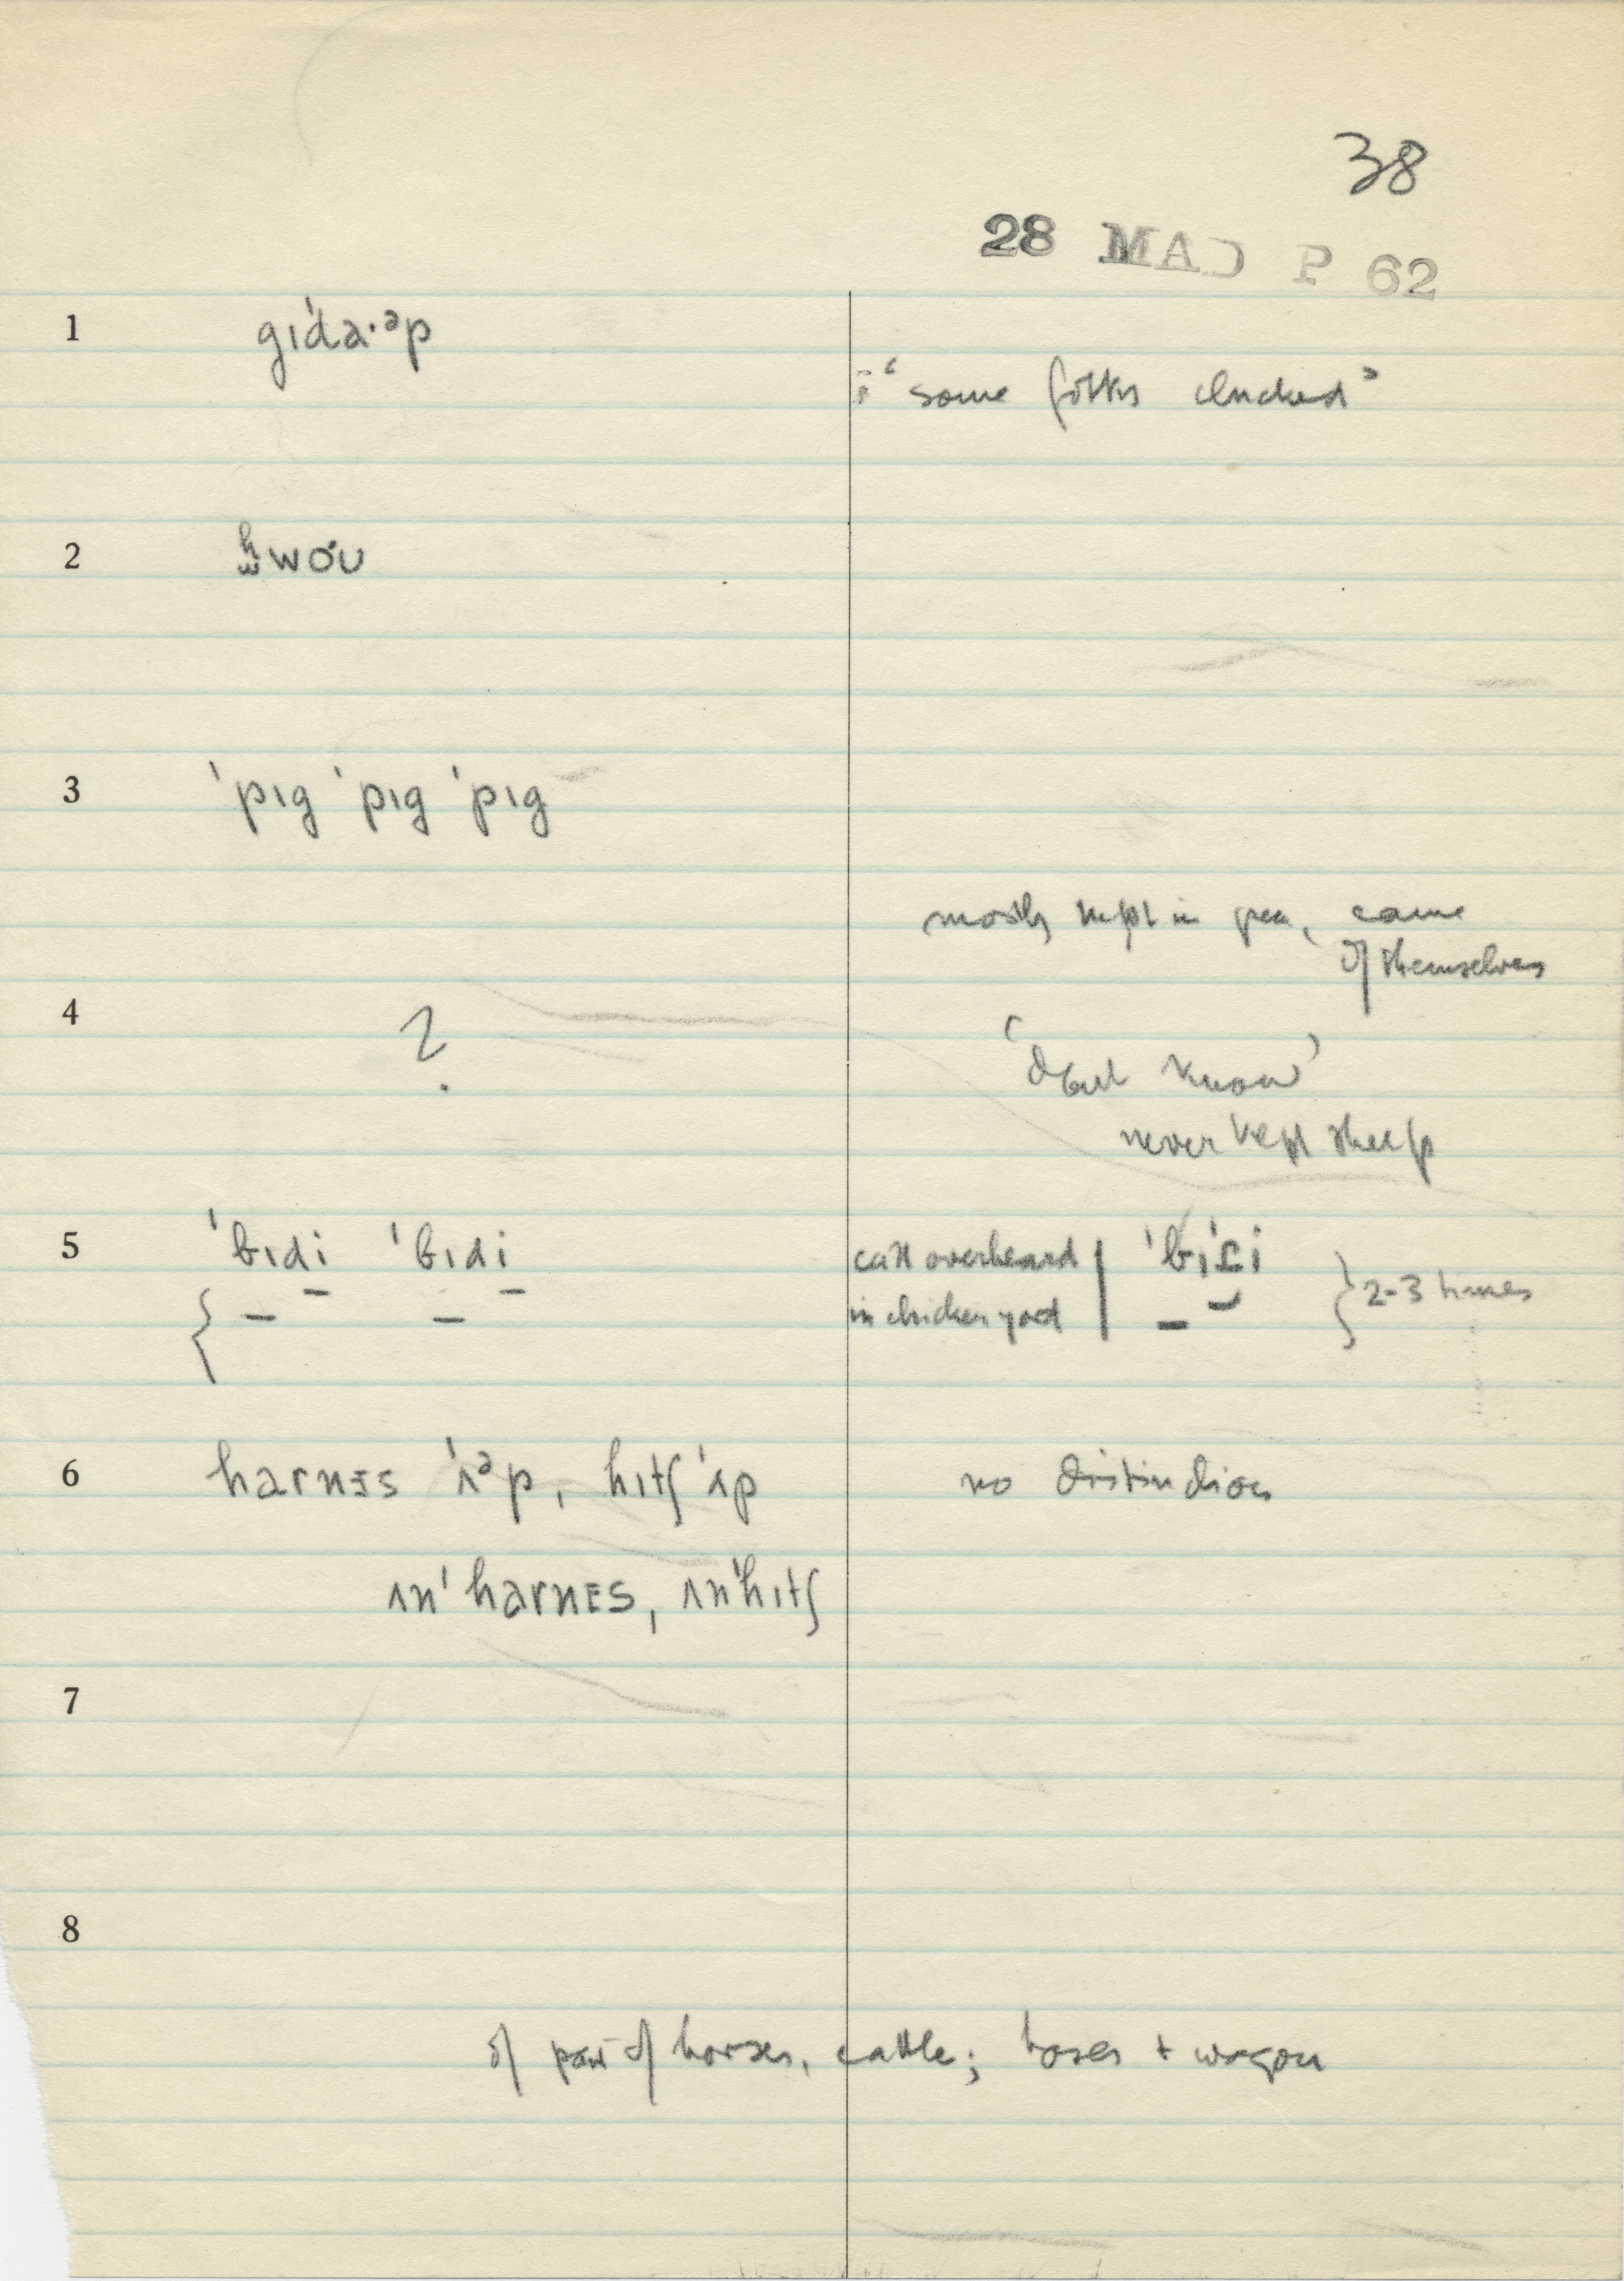 38
28 MAD P 62
1 gɪˈda·ᵊp
: "some folks clucked"
2 hwoʊ
3 ˈpɪg ˈpɪg ˈpɪg
mostly kept in pen, came
of themselves
4 ?
'don't know'
never kept sheep
5 ˈbɪdi ˈbɪdi
call overheard
in chicken yard
2-3 times
6 harnɛs ˈʌᵊp, hɪtʃ ˈʌp
no distinction
ʌnˈharnɛs, ʌnˈhɪtʃ
7
8
of pair of horses, cattle; horses + wagon